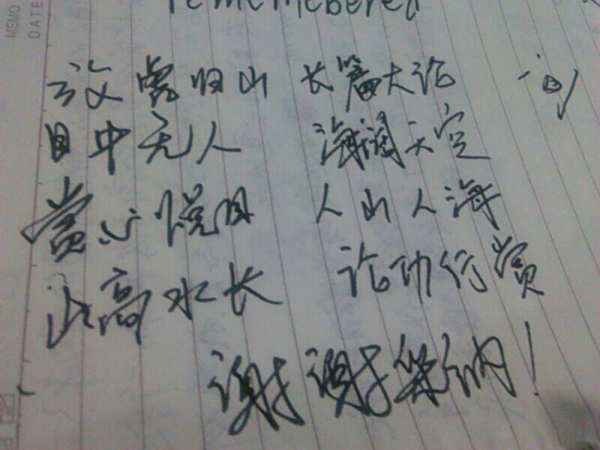 remembered
放虎归山 长篇大论
目中无人 海阔天空
赏心悦目 人山人海
山高水长 论功行赏
谢谢采纳!
MEMO
DATE